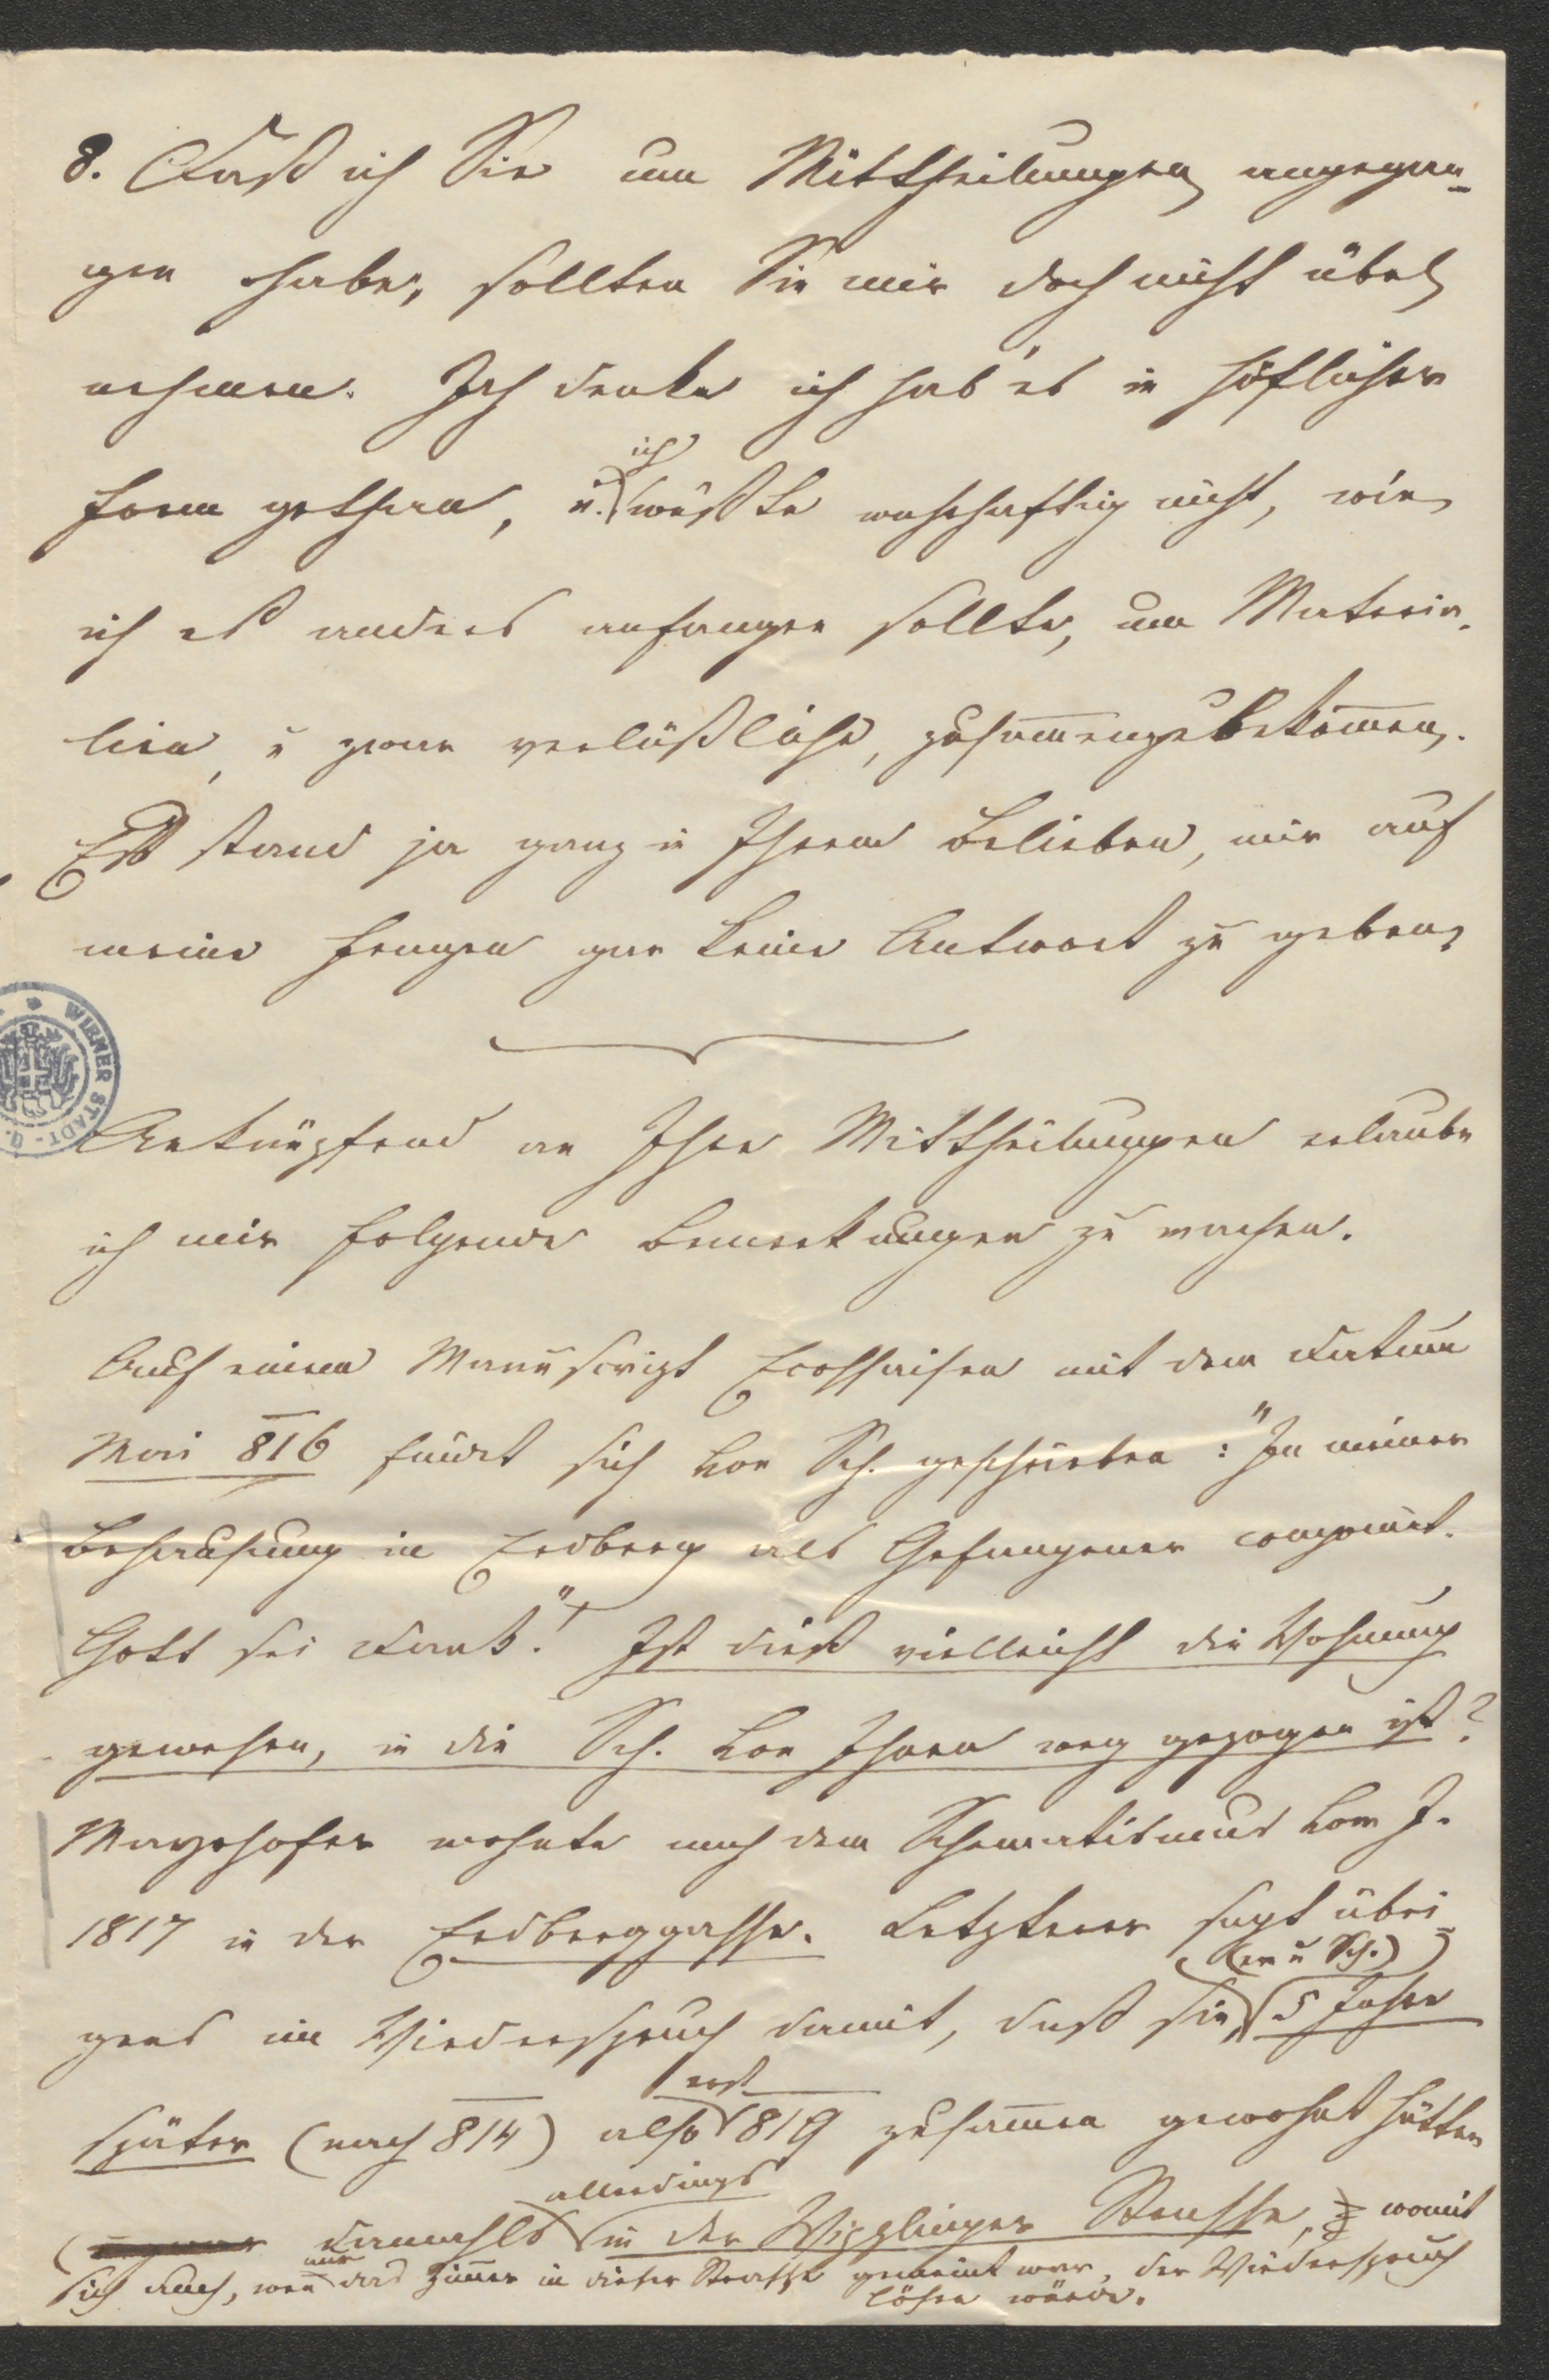 8. Daß ich Sie um Mittheilungen angegan-
gen habe, sollten Sie mir doch nicht übel
nehmen. Ich denke ich hab' es in höflicher
Form gethan, u. ich wüßte wahrhaftig nicht, wie
ich es anders anfangen sollte, um Materia-
lien, u zwar verläßliche, zusam̅enzubekom̅en.
Es stand ja ganz in Ihrem Belieben, mir auf
meine Fragen gar keine Antwort zu geben,
WIENER STADT-
Anknüpfend an Ihre Mittheilungen erlaube
ich mir folgende Bemerkungen zu machen.
Auf einem Manuscript Ecossaisen mit dem Datum
Mai 816 findet sich von Sch. geschrieben: "In meiner
Behausung in Erdberg als Gefangener componirt.
Gott sei Dank!" Ist dieß vielleicht die Wohnung
gewesen, in die Sch. von Ihnen weg gezogen ist?
Mayrhofer wohnte nach dem Schematismus vom J.
1817 in der Erdberggasse. Letzterer sagt übri-
gens im Wiederspruch damit, daß sie (er u Sch.) 5 Jahre
später (nach 814) also erst 819 zusam̅en gewohnt hätten
( damahls allerdings in der Wipplinger Strasse, womit
sich auch, wen̅ nur das Zim̅er in dieser Strasse gemeint war, der Wiederspruch
lösen würde.